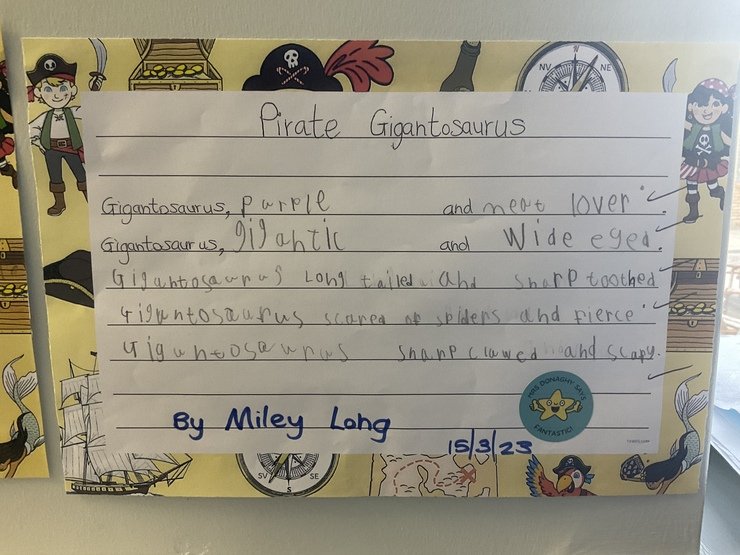 NV
NE
Pirate Gigantosaurus
Gigantosaurus, purple and meat lover.
Gigantosaurus, gigantic and Wide eyed.
Gigantosaurus Long tailed and sharp toothed.
Gigantosaurus scared of spiders and fierce.
Gigantosaurus sharp clawed and scary.
MRS DONAGHY SAYS
FANTASTIC!
By Miley Long
15/3/23
SV
S
SE